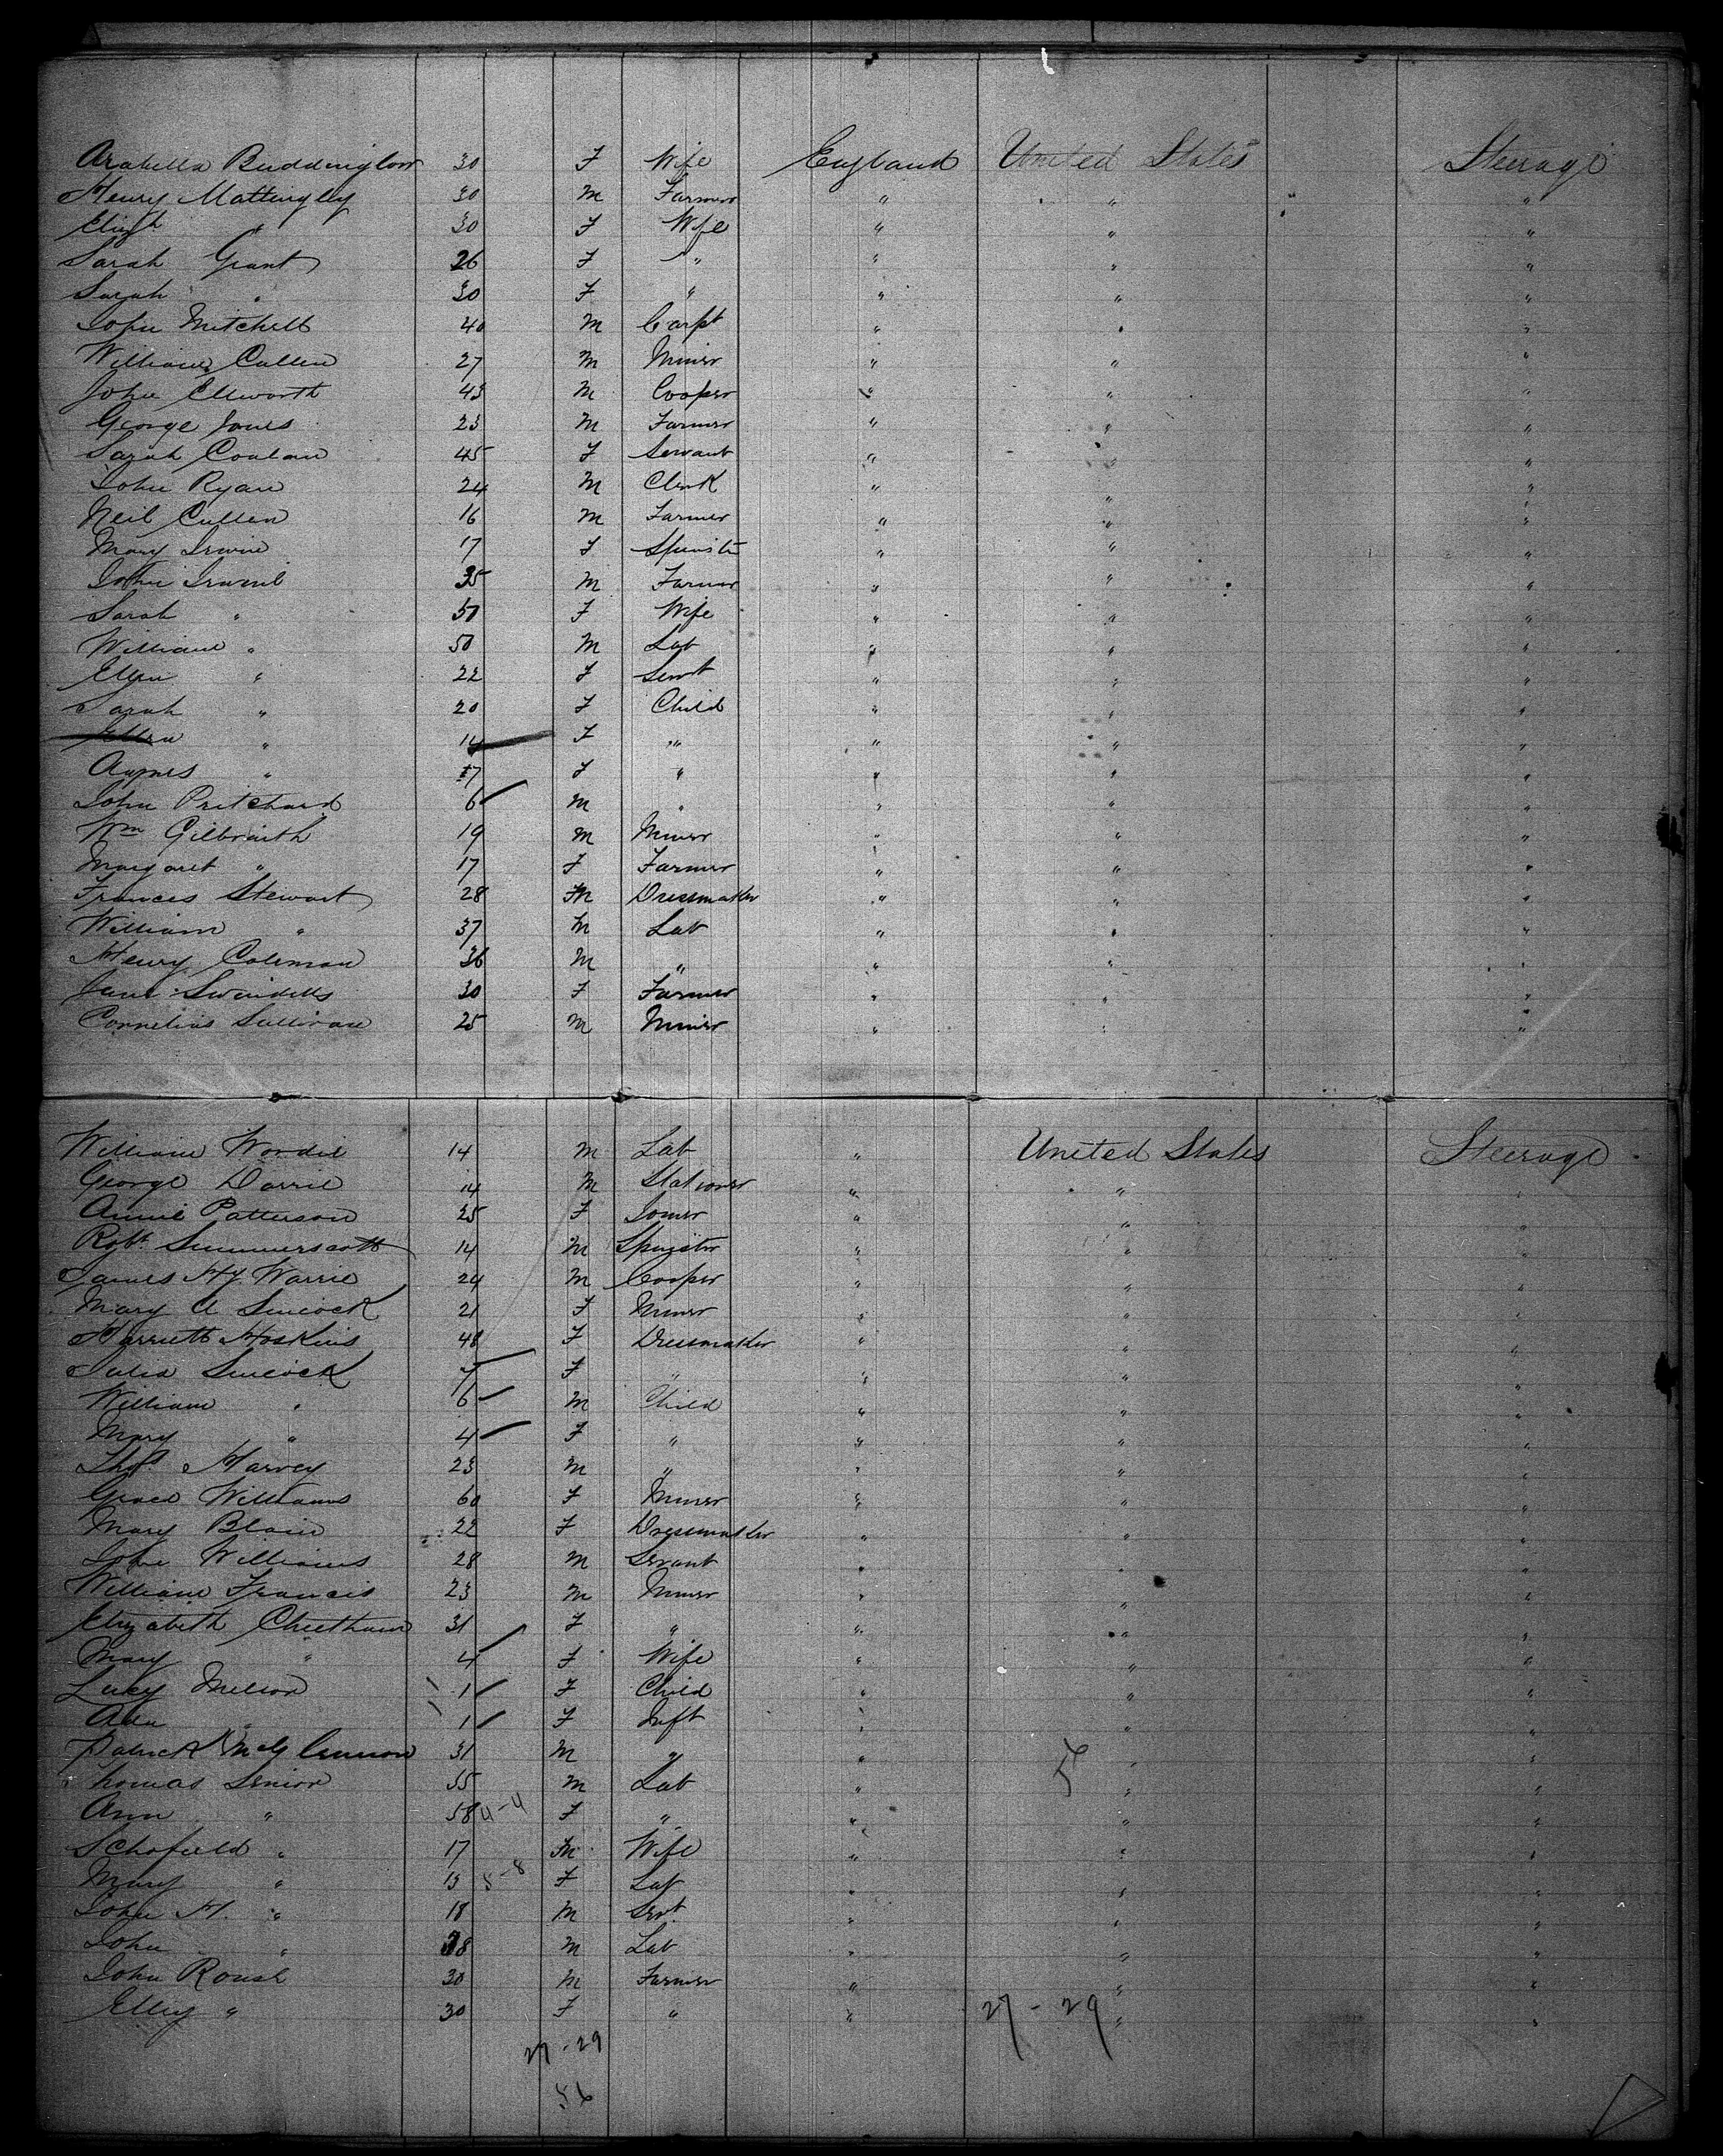 Arabella Buddington 30 F Wife England United States Steerage
Henry Mattingley 30 M Farmer " " "
Elizth " 30 F Wife " " "
Sarah Grant 26 F " " " "
Sarah " 30 F " " " "
John Mitchell 40 M Carpt " " "
William Cullen 27 M Miner " " "
John Ellworth 43 M Cooper " " "
George Jones 23 M Farmer " " "
Sarah 45 F Servant " " "
John Ryan 24 M Clerk " " "
Neil Cullen 16 M Farmer " " "
Mary Irwin 17 F Spinstr " " "
John 35 M Farmer " " "
Sarah " 50 F Wife " " "
William " 50 M Lab " " "
Ellen " 22 F Servt " " "
Sarah " 20 F Child " " "
Ellen " 14 F " " " "
Agnes " 17 F " " " "
John Pritchard 6 M " " " "
Wm Gilbraith 19 M Miner " " "
Margaret " 17 F Farmer " " "
Frances Stewart 28 M Dressmaker " " "
William " 37 M Lab " " "
Henry Coleman 36 M " " " "
Jane Swindells 30 F Farmer " " "
Cornelius Sullivan 25 M Miner " " "
William Wordie 14 M Lab " United States Steerage
George Darrie 14 M Stationer " " "
Annie Patterson 25 F Joiner " " "
Robt Summerscott 14 M Spinster " " "
James Hy Warrie 24 M Cooper " " "
Mary A Simcock 21 F Miner " " "
Harriett Hoskins 48 F Dressmaker " " "
Julia Simcock 7 F " " " "
William " 6 M Child " " "
Mary " 4 F " " " "
Thos Harvey 23 M " " " "
Grace Williams 60 F Miner " " "
Mary Blain 22 F Dressmaker " " "
John Williams 28 M Servant " " "
William Francis 23 M Miner " " "
Elizabeth Cheetham 31 F " " " "
Mary " 4 F Wife " " "
Lucy Mellor 1 F Child " " "
Ada " 1 F Inft " " "
Patrick 31 M " " " "
Thomas Senior 55 M Lab " " "
Ann " 58 4-4 F " " " "
Schofield " 17 M Wife " " "
Mary " 15 F Lab " " "
John H. " 18 M Servt " " "
John " 38 M Lab " " "
John Rouse 30 M Farmer " " "
Elley " 30 F " " " "
27 - 29
27 - 29
56